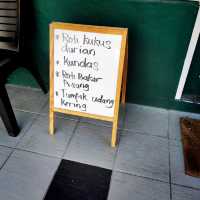 * Roti Kukus
durian
* Kundas
* Roti Bakar
Pisang
* Tumpak udang
Kering